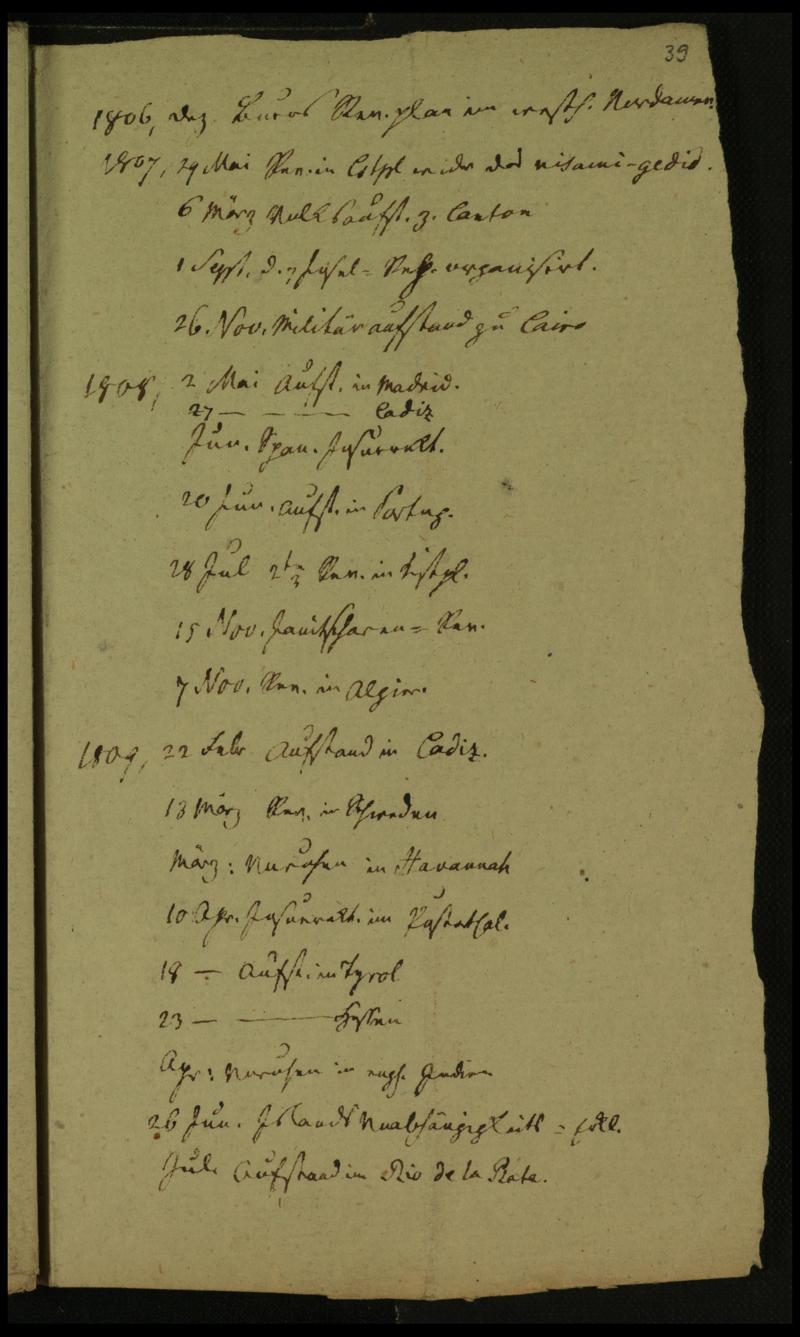 39
1806, Dez. Burrs Rev.plan im westl. Nordamer.
1807, 29 Mai Rev. in Cstpl wider das nisami-gedid.
6 März Volksaufst. z. Canton
1 Sept. d. 7 Insel-Rep. organisirt.
26. Nov. Militäraufstand zu Cairo
1808, 2 Mai Aufst. in Madrid.
27 — — — Cadiz
Jun. Span. Insurrekt.
20 Jun. Aufst. in Portug.
28 Jul 2te Rev. in Cstpl.
15 Nov. Janitscharen-Rev.
7 Nov. Rev. in Algier.
1809, 22 Febr Aufstand in Cadiz.
13 März Rev. in Schweden
März: Unruhen in Havannah
10 Apr. Insurrekt. im Pusterthal.
18 — Aufst. in Tyrol
23 — — Hessen
Apr: Unruhen in engl. Indien
26 Jun. Islands Unabhängigkeits-Erkl.
Jul. Aufstand in Rio de la Plata.